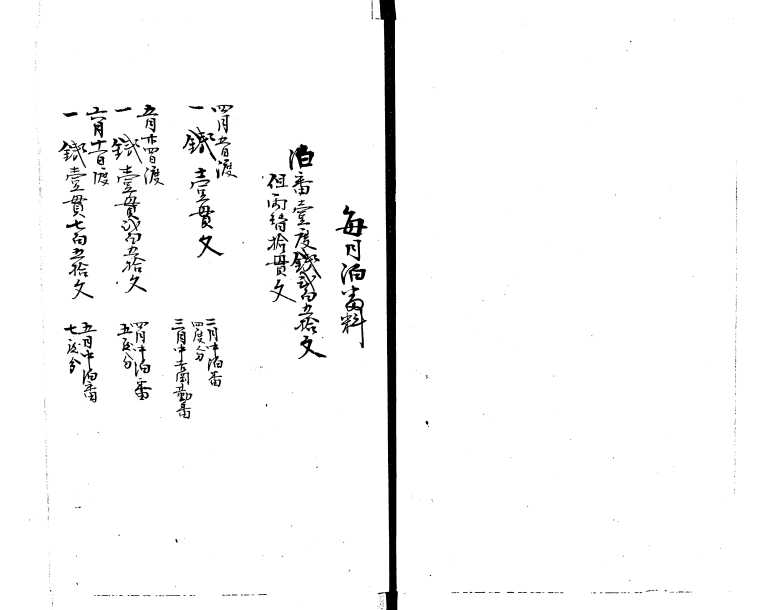 毎月泊番料
泊番壹度銭弐百五拾文
但両替拾貫文
四月五日渡
一 銭壹貫文
二月中泊番
四度分
三月中
五月廿四日渡
一 銭壹貫弐百五拾文
四月中泊番
五度分
六月十一日渡
一 銭壹貫七百五拾文
五月中泊番
七度分